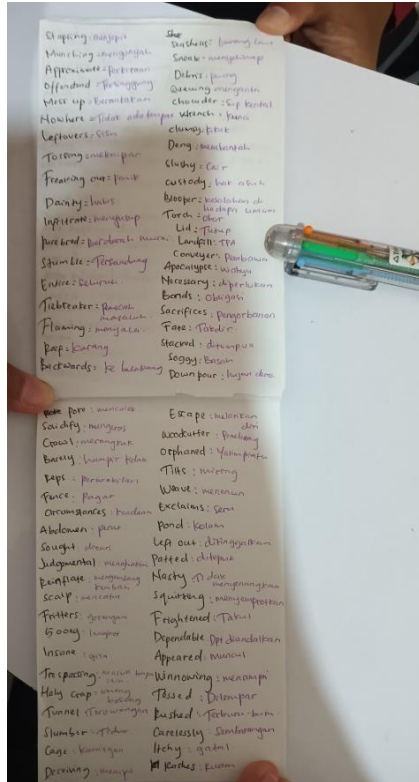 Stapling = menjepit
Munching = mengunyah
Approximate = Perkiraan
Offended = Tersinggung
Mess up = Berantakan
Nowhere = Tidak ada tempat
Leftovers = Sisa
Tossing = melempar
Freaking out = panik
Dainty = 
Infiltrate = menyusup
Purebred = 
Stumble = Tersandung
Entire = Seluruh
Tiebreaker = 
Flaming = menyala
Reep = Karang
Backwards = ke belakang
She
Seashells = 
Sneak = 
Debris = puing
Queuing = mengantri
Chowder = Sup kental
Wrench = Kunci
clumsy =
Deny = membantah
Slushy = Cair
custody = hak asuh
Blooper = kesalahan di
hadapan umum
Torch = obor
Lid = Tutup
Landfill = TPA
Conveyer = Pembawa
Apocalypse = wahyu
Nicessary = diperlukan
Bonds = Obligasi
Sacrifices = Pengorbanan
Fate = Takdir
Stacked = ditumpuk
Soggy = Basah
Down pour = hujan deras
Solidify =
Crawl = merangkak
Barely = hampir tidak
Reps =
Fence = Pagar
Circumstances = keadaan
Abdomen = perut
Sought = dicari
Judgmental =
Reinflate =
Scalp =
Fritters = gorengan
Gooey =
Insane = gila
Trespassing =
Holy crap =
Tunnel = Terowongan
Slumber = Tidur
Cage = Kurungan
Deceiving = menipu
Escape = melarikan
diri
Woodcutter =
Orphaned = Yatim piatu
Tilts = miring
Weave = menenun
Exclaims = Seru
Pond = Kolam
Left out = ditinggalkan
Patted = ditepuk
Nasty = Tidak
menyenangkan
Squirting = menyemprotkan
Frightened = Takut
Dependable = Dpt diandalkan
Appeared = Muncul
Winnowing = menampi
Tossed = Dilempar
Rushed = Terburu-buru
Carelessly = Sembarangan
Itchy = gatal